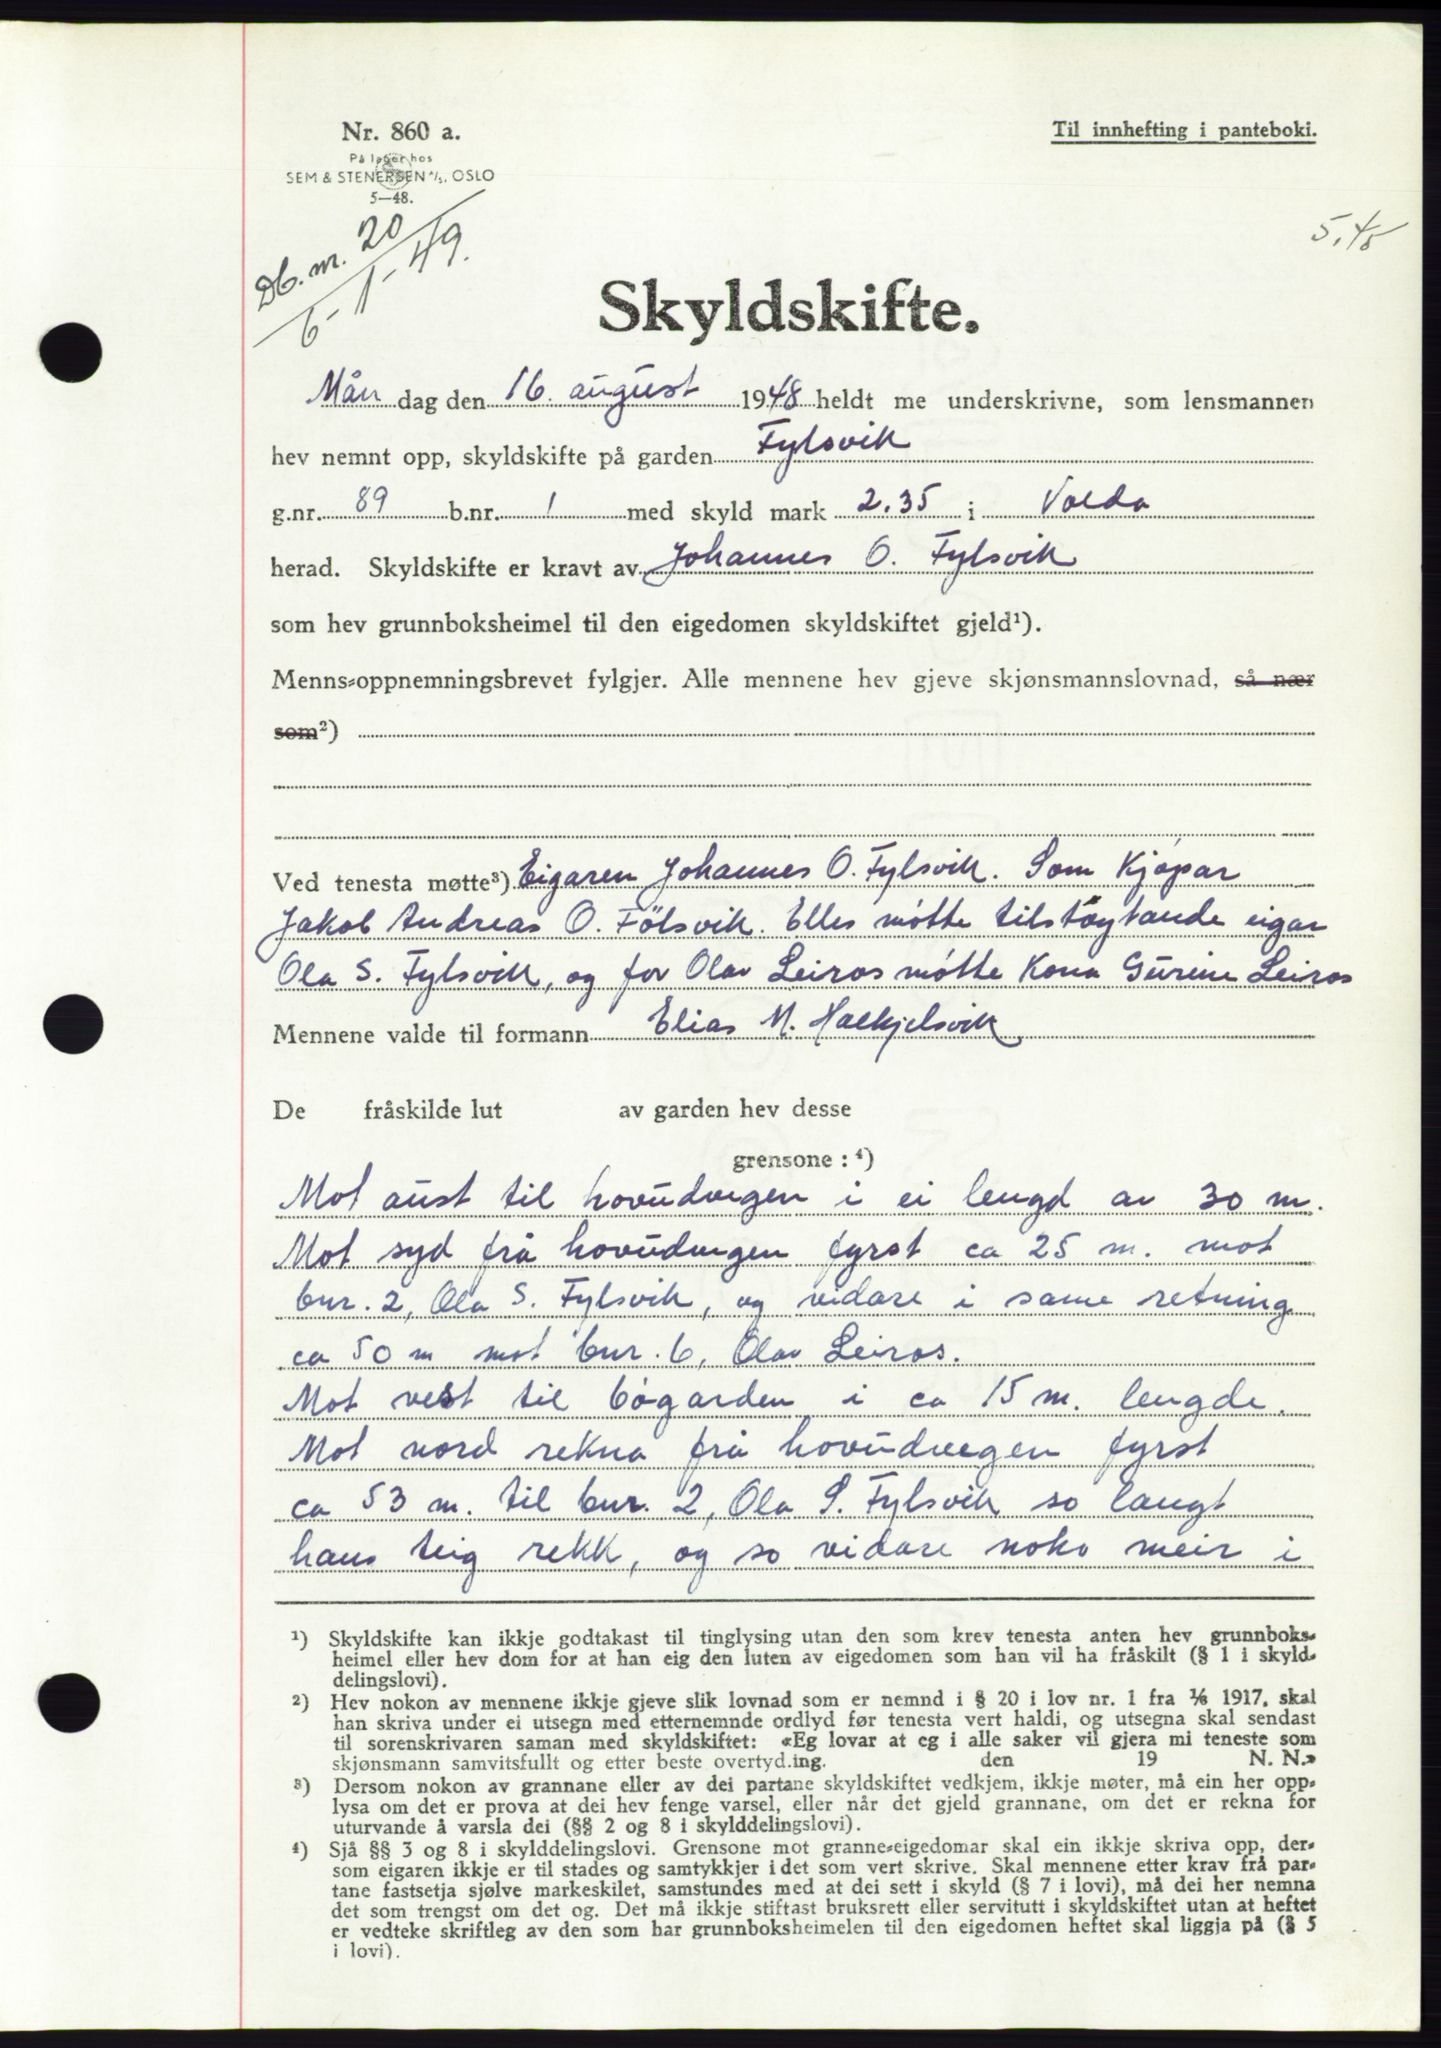 Nr. 860 a.
På lager hos
SEM & STENERSEN A/S, OSLO
5—48.
Til innhefting i panteboki.
Db. nr. 20
6-1-49.
Skyldskifte.
Mån dag den 16. august 1948 heldt me underskrivne, som lensmannen
hev nemnt opp, skyldskifte på garden Fylsvik
g.nr. 89 b.nr. 1 med skyld mark 2.35 i Volda
herad. Skyldskifte er kravt av Johannes O. Fylsvik
som hev grunnboksheimel til den eigedomen skyldskiftet gjeld¹).
Menns-oppnemningsbrevet fylgjer. Alle mennene hev gjeve skjønsmannslovnad, så nær
som²)
Ved tenesta møtte³) Eigaren Johannes O. Fylsvik. Som Kjöpar
Jakob Andreas O. Fölsvik. Elles mötte tilstöytande eigar
Ola S. Fylsvik, og for Olav Leiros mötte Kona Gurine Leiros
Mennene valde til formann Elias M. Halkjelsvik
De fråskilde lut av garden hev desse
grensone : ⁴)
Mot aust til hovudvegen i ei lengd av 30 m.
Mot syd frå hovudvegen fyrst ca 25 m. mot
bnr. 2, Ola S. Fylsvik, og vidare i same retning
ca 50 m mot bnr. 6, Olav Leiros.
Mot vest til bögarden i ca 15 m. lengde.
Mot nord rekna frå hovudvegen fyrst
ca 53 m. til bnr. 2, Ola S. Fylsvik so langt
hans teig rekk, og so vidare noko meir i
¹) Skyldskifte kan ikkje godtakast til tinglysing utan den som krev tenesta anten hev grunnboks-
heimel eller hev dom for at han eig den luten av eigedomen som han vil ha fråskilt (§ 1 i skyld-
delingslovi).
²) Hev nokon av mennene ikkje gjeve slik lovnad som er nemnd i § 20 i lov nr. 1 fra 1/6 1917, skal
han skriva under ei utsegn med etternemnde ordlyd før tenesta vert haldi, og utsegna skal sendast
til sorenskrivaren saman med skyldskiftet: «Eg lovar at eg i alle saker vil gjera mi teneste som
skjønsmann samvitsfullt og etter beste overtyding. den 19 N. N.»
³) Dersom nokon av grannane eller av dei partane skyldskiftet vedkjem, ikkje møter, må ein her opp-
lysa om det er prova at dei hev fenge varsel, eller når det gjeld grannane, om det er rekna for
uturvande å varsla dei (§§ 2 og 8 i skylddelingslovi).
⁴) Sjå §§ 3 og 8 i skylddelingslovi. Grensone mot granne-eigedomar skal ein ikkje skriva opp, der-
som eigaren ikkje er til stades og samtykkjer i det som vert skrive. Skal mennene etter krav frå par-
tane fastsetja sjølve markeskilet, samstundes med at dei sett i skyld (§ 7 i lovi), må dei her nemna
det som trengst om det og. Det må ikkje stiftast bruksrett eller servitutt i skyldskiftet utan at heftet
er vedteke skriftleg av den som har grunnboksheimelen til den eigedomen heftet skal liggja på (§ 5
i lovi).